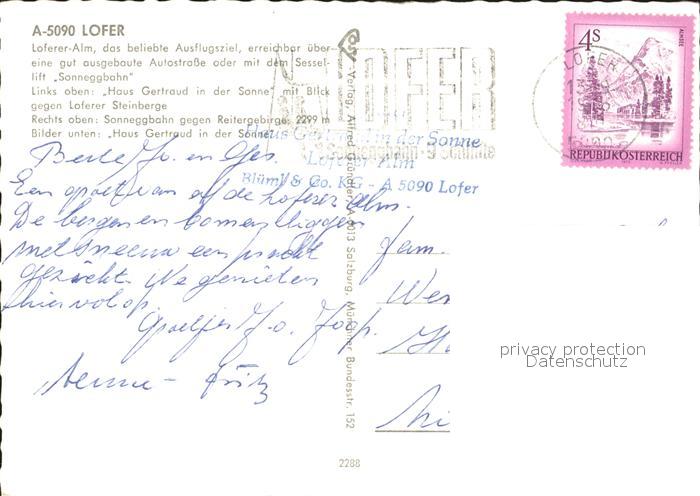 A-5090 LOFER
Loferer-Alm, das beliebte Ausflugsziel, erreichbar über
eine gut ausgebaute Autostraße oder mit dem Sessel-
lift „Sonneggbahn“
Links oben: „Haus Gertraud in der Sonne“ mit Blick
gegen Loferer Steinberge
Rechts oben: Sonneggbahn gegen Reitergebirge: 2299 m
Bilder unten: „Haus Gertraud in der Sonne
Haus Gertraud in der Sonne
Loferer Alm
Blüml & Co. KG - A 5090 Lofer
LOFER
4S
ALMSEE
REPUBLIK ÖSTERREICH
LOFER
Beste Jo. en
Een groet van af de Loferer Alm.
De bergen en bomen liggen
met sneeuw een pracht
gezicht. We genieten
hier volop.
Groetjes
Fritz
Fam.
Wes
Verlag: Alfred
Salzburg, Münchner Bundesstr. 152
2288
privacy protection
Datenschutz